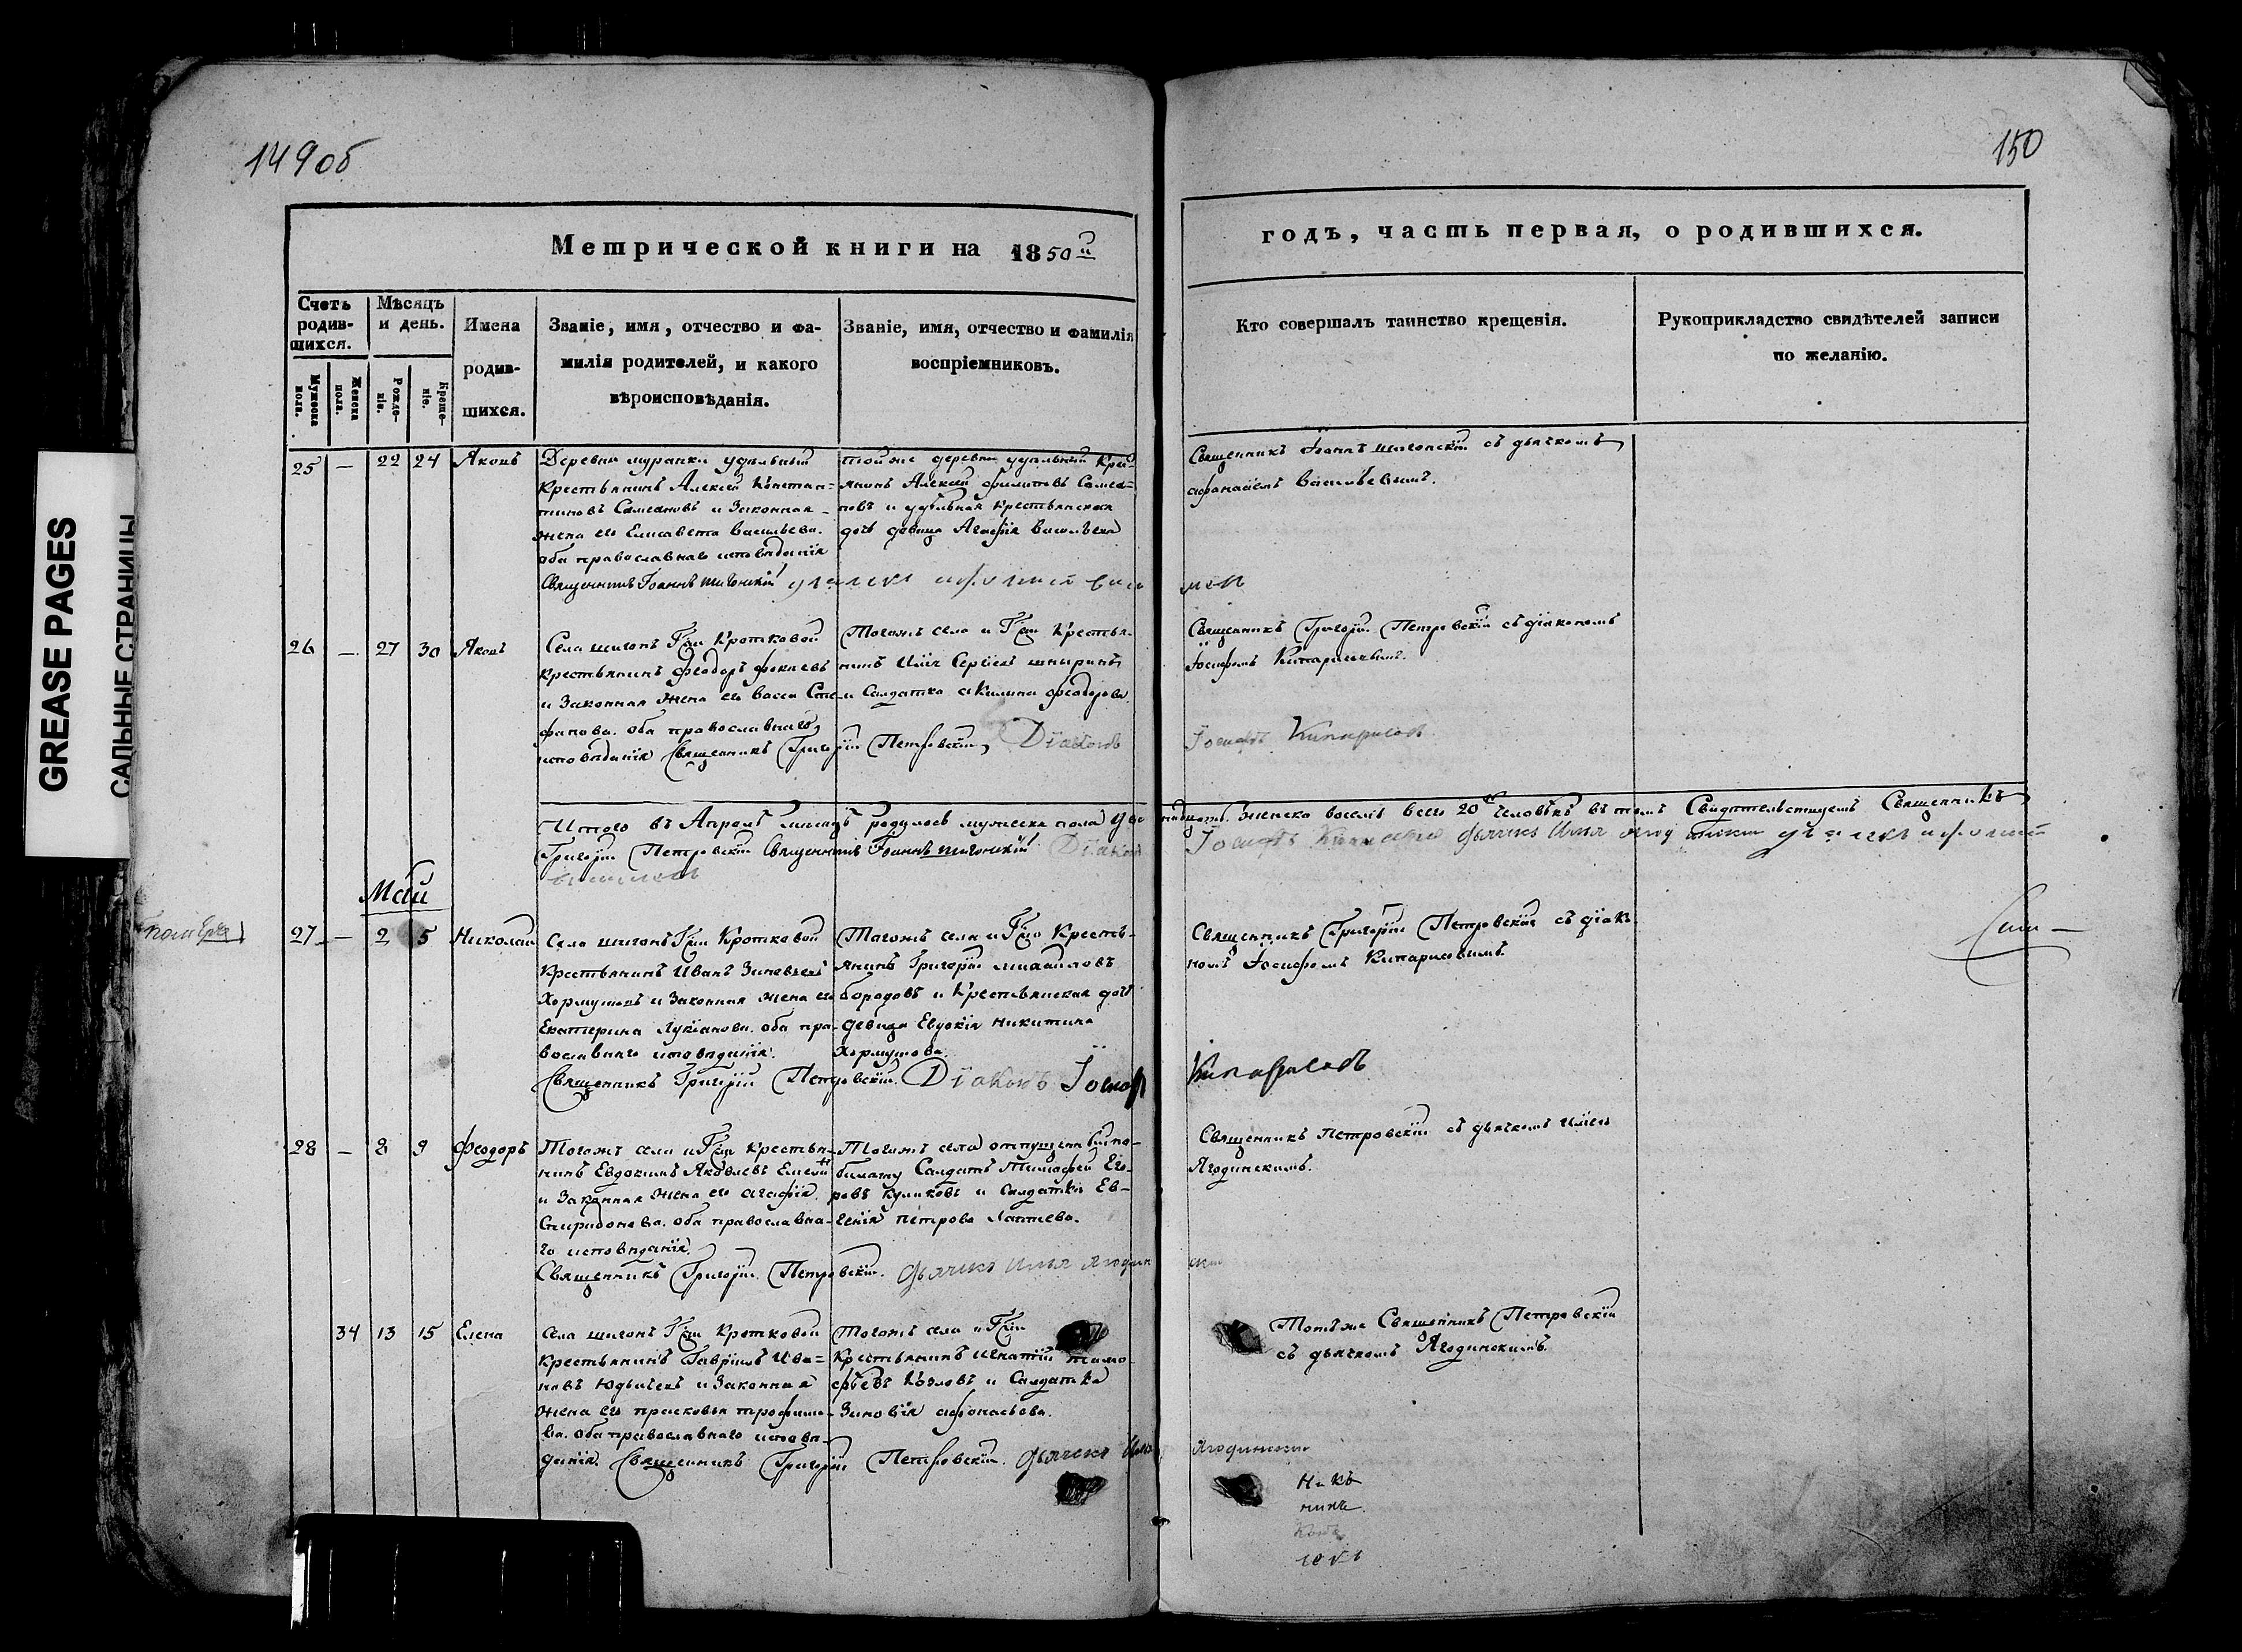 149об
150
GREASE PAGES
САЛЬНЫЕ СТРАНИЦЫ
Метрической книги на 1850й
годъ, часть первая, о родившихся.
Счетъ родив-
шихся.
Мужеска пола.
Женска пола.
Мѣсяцъ
и день.
Рожде-
ніе.
Креще-
ніе.
Имена
родив-
шихся.
Званіе, имя, отчество и фа-
милія родителей, и какого
вѣроисповѣданія.
Званіе, имя, отчество и фамилія
воспріемниковъ.
Кто совершалъ таинство крещенія.
Рукоприкладство свидѣтелей записи
по желанію.
25 — 22 24 Яковъ
Деревни муранки удѣльный
крестьянинъ Алексей Констан=
тиновъ Самсоновъ и законная
жена его Елисавета Васильева.
оба православнаго исповѣданія
Священникъ Іоаннъ
тойже деревни удѣльный Кре-
янинъ Алексей
повъ и удѣльная крестьянская
дочь девица Агафія Васильева
Священникъ Іоаннъ съ дьячкомъ
афанасіемъ Васильевымъ.
26 — 27 30 Яковъ
Села шигонъ Гжи Кротковой
крестьянинъ Феодоръ Фокиевъ
и законная жена его Васса Сте-
фанова. оба православнаго
исповѣданія Священникъ Григорій Петровскій Діаконъ
Іосифъ Кипарисовъ
Тогожъ села и Гжи Крестья-
нинъ Илія Сергіевъ шныринъ
и Салдатка акилина феодорова.
Священникъ Григорій Петровскій съ діакономъ
Іосифомъ Кипарисовымъ.
Итого въ Апрелѣ месяцѣ родилось мужеска пола две надцать. женска восемь всего 20 человѣкъ въ томъ Свидѣтельствуемъ Священникъ
Григорій Петровскій Священникъ Іоаннъ Діаконъ Іосифъ
Май
27 — 2 5 Николай
Села шигонъ Гжи Кротковой
крестьянинъ Иванъ Зиновьевъ
Хормушовъ и законная жена его
Екатерина Лукіанова. оба пра-
вославнаго исповѣданія.
Священникъ Григорій Петровскій. Діаконъ Іосиф
Кипарисовъ
Тогожъ села и Гжи Кресть-
янинъ Григорій михайловъ
бородовъ и Крестьянская дочь
девица Евдокія никитина
Хормушова.
Священникъ Григорій Петровскій съ діако
номъ Іосифомъ Кипарисовымъ.
28 — 8 9 Феодоръ
Тогожъ села и Гжи крестья-
нинъ Евдокимъ Яковлевъ
и законная жена его агафія
Спиридонова. оба православна-
го исповѣданія.
Священникъ Григорій Петровскій. Дьячекъ Илья Ягодин
скій
Тогожъ села отпущенный по
билету Салдатъ Тимофей Его-
ровъ Куликовъ и салдатка Ев-
генія петрова Лаптева.
Священникъ Петровскій съ дьячкомъ Иліею
Ягодинскимъ.
34 13 15 Елена
Села шигонъ Гжи Кротковой
крестьянинъ Гавріилъ Ива=
новъ Юдичевъ и законная
жена его прасковья трофимо-
ва. оба православнаго исповѣ-
данія. Священникъ Григорій Петровскій. Дьячекъ Илья
Ягодинскій
Тогожъ села и Гжи
крестьянинъ игнатій тимо-
фѣевъ Козловъ и Салдатка
Зиновія афонасьева.
Тотъже Священникъ Петровскій
съ дьячкомъ Ягодинскимъ.